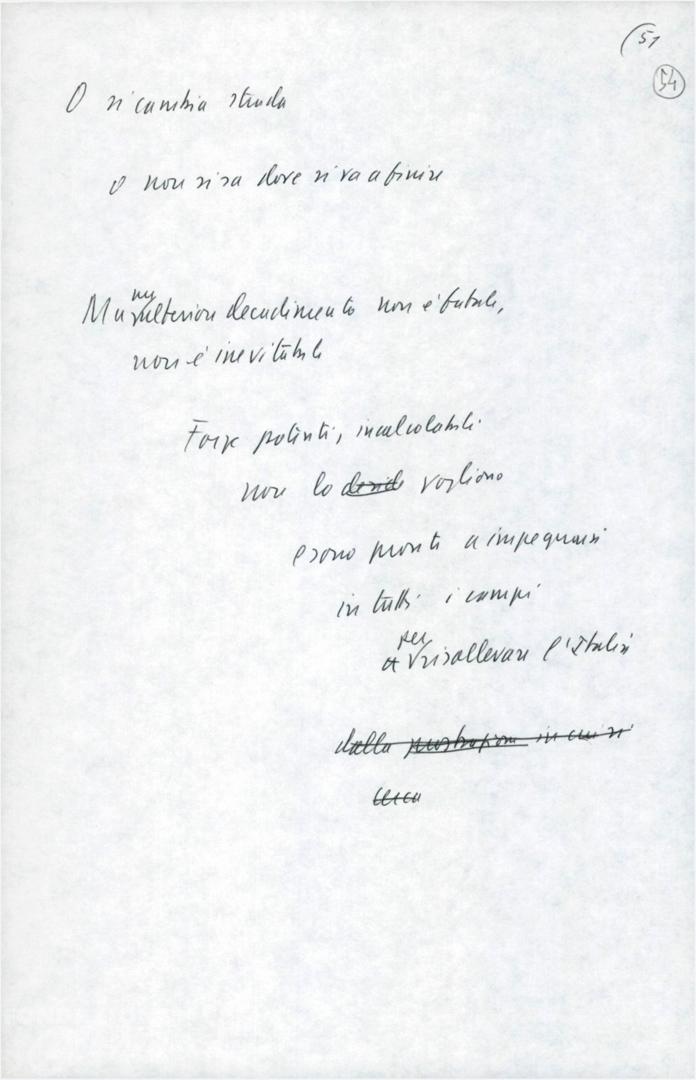 (51
54
O si cambia strada
o non si sa dove si va a finire
un
Ma ulteriore decadimento non è fatale,
non è inevitabile
Forze potenti, incalcolabili
non lo vogliono
e sono pronte a impegnarsi
in tutti i campi
per
a risollevare l'Italia
dalla prostrazione in cui si